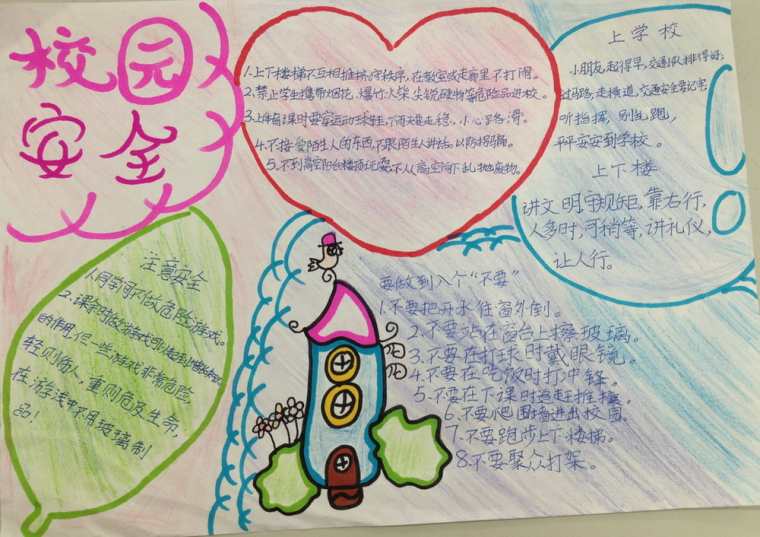 校园
安全
1.上下楼梯不互相推挤,守秩序,在教室或走廊里不打闹。
2.禁止学生携带烟花、爆竹、火柴、尖锐硬物等危险品进校。
3.上体育课时要穿运动球鞋,下雨天要走稳,小心路滑。
4.不接受陌生人的东西,不跟陌生人讲话,以防拐骗。
5.不到高空阳台楼顶玩耍,不从高空向下乱抛废物。
上学校
小朋友,起得早,交通队排得好;
过马路,走横道,交通安全要记牢
听指挥,别乱跑,
平平安安到学校。
上下楼
讲文明守规矩,靠右行,
人多时,可稍等,讲礼仪,
让人行。
注意安全
1.同学间不做危险游戏。
2.课间时做游戏可以起到
的作用,但一些游戏非常危险,
轻则伤人,重则危及生命,
在游戏中不用玻璃制
品!
要做到八个“不要”
1.不要把开水往窗外倒。
2.不要站在窗台上擦玻璃。
3.不要在打球时戴眼镜。
4.不要在吃饭时打冲锋。
5.不要在下课时追赶推搡。
6.不要爬围墙进出校园。
7.不要跑步上下楼梯。
8.不要聚众打架。